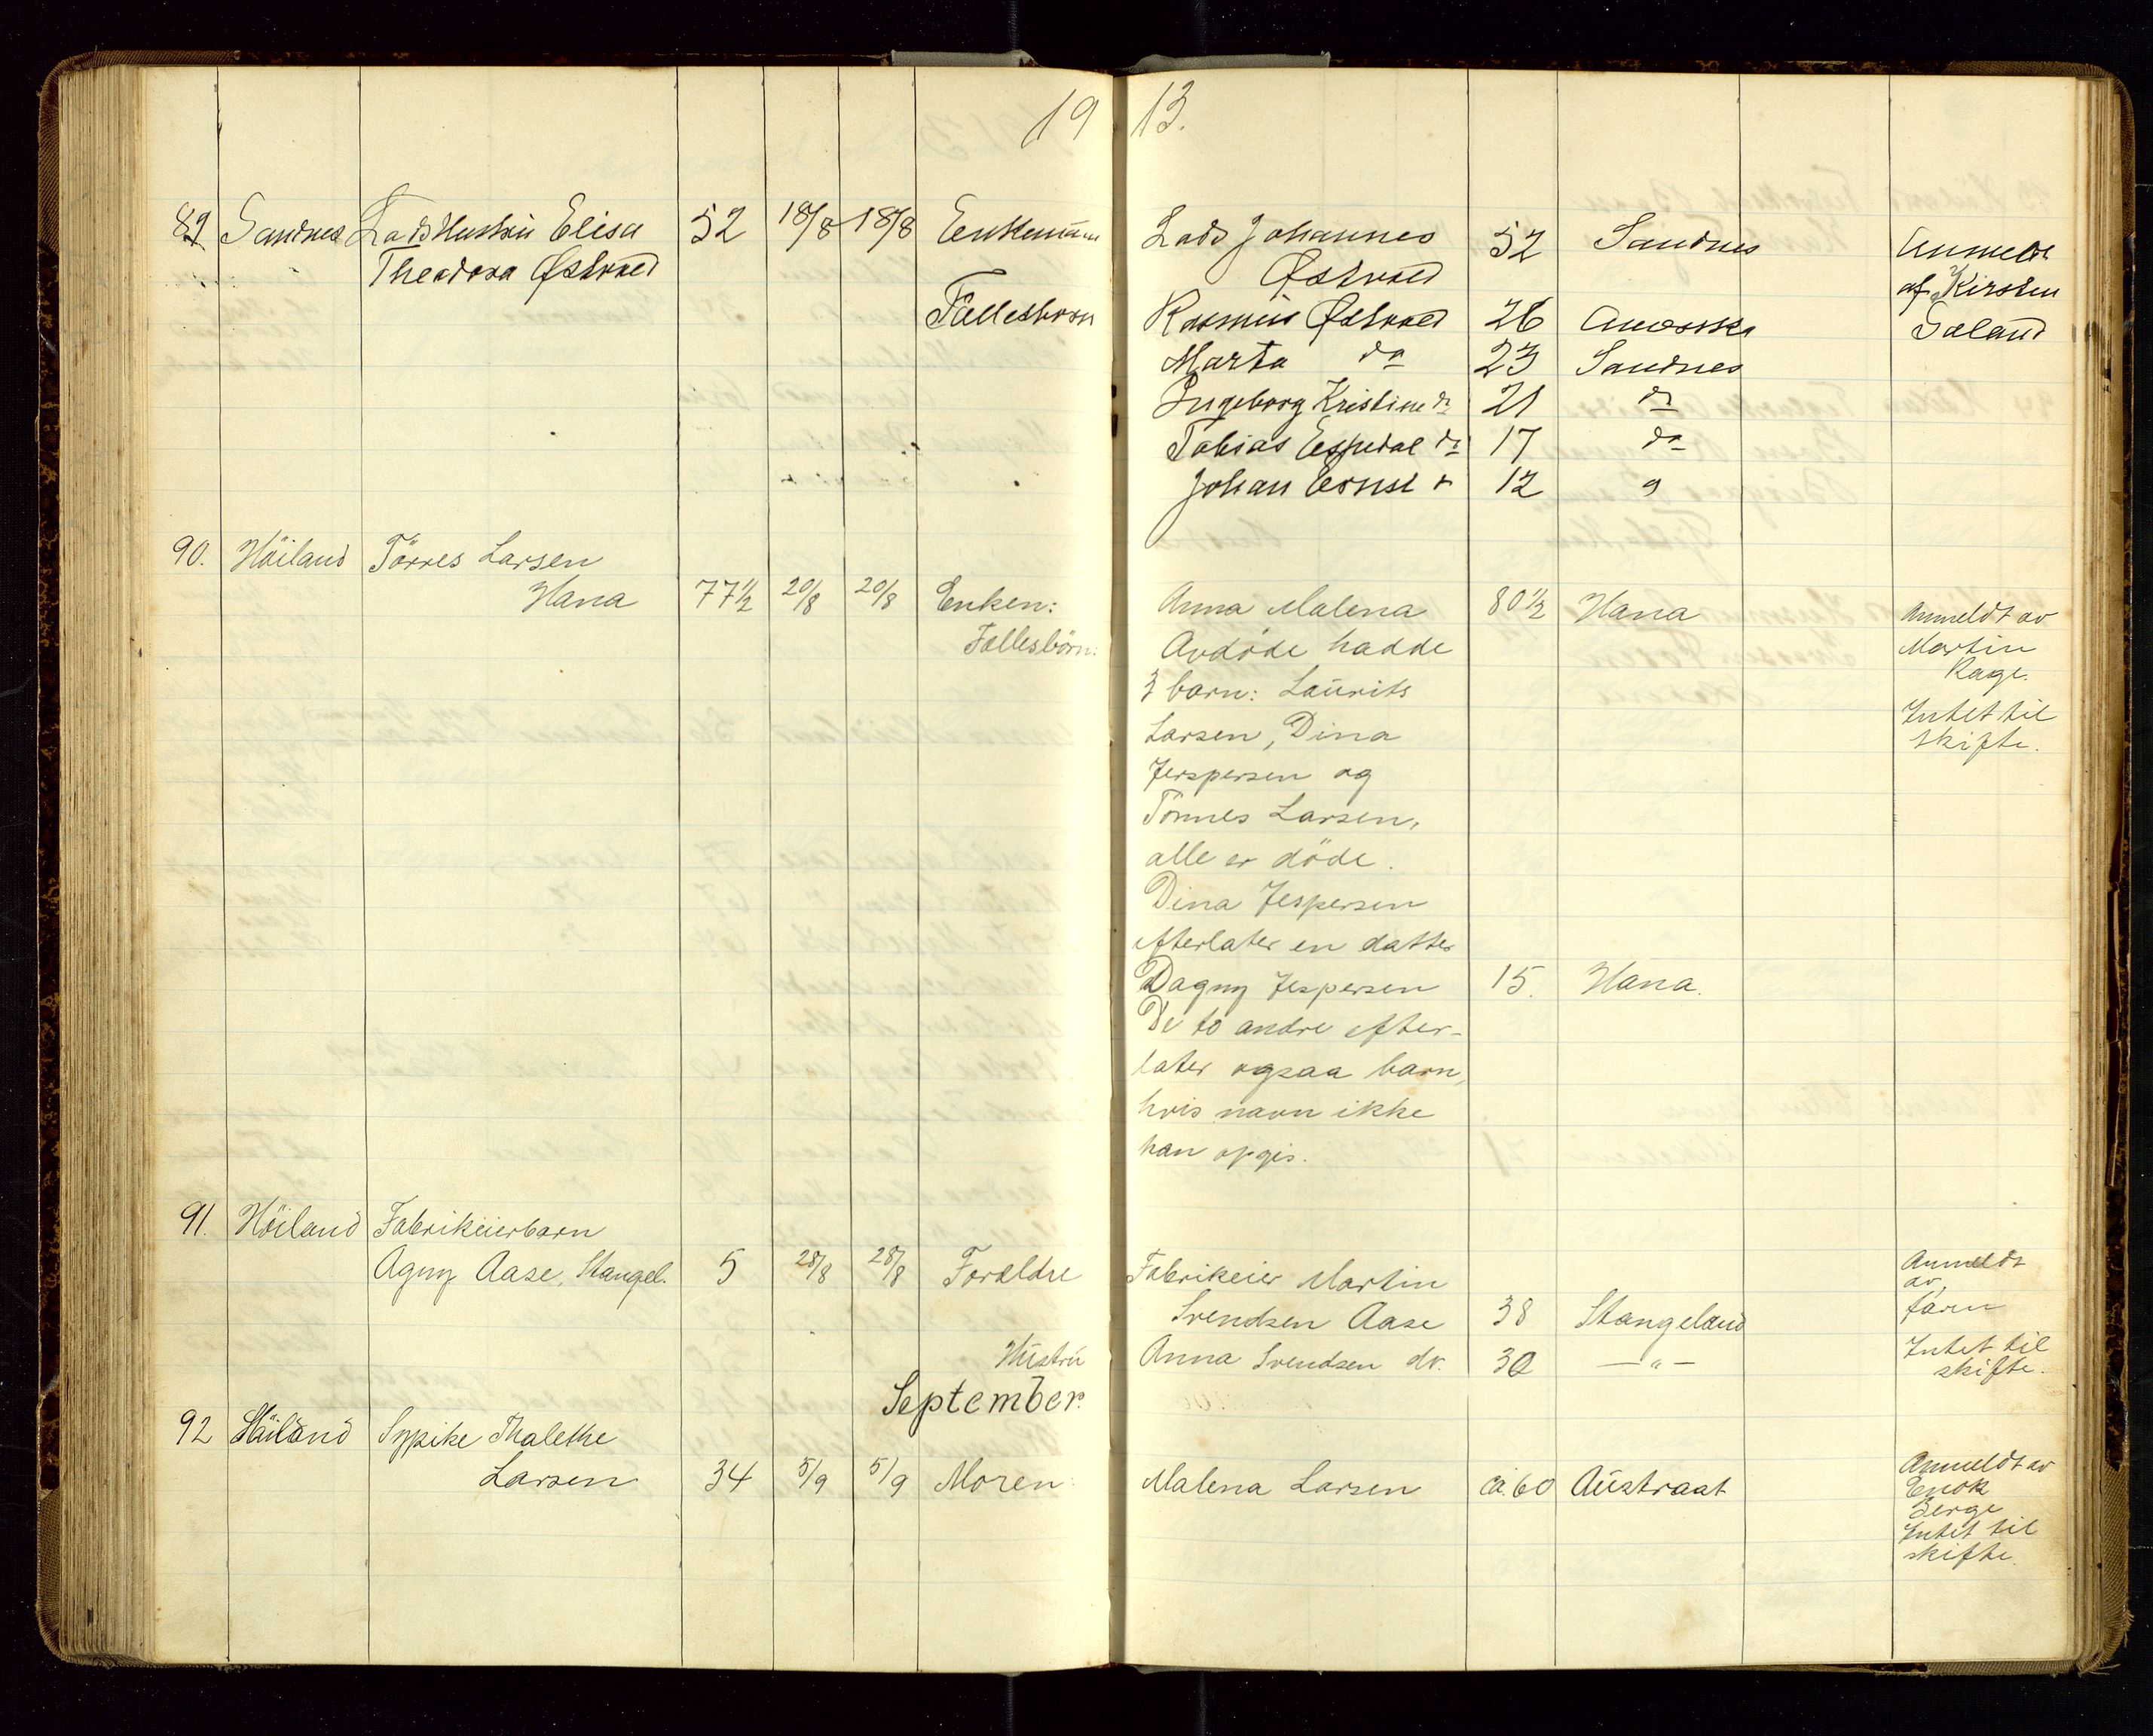 19 13.
89 Sandnes Lads Hustru Elisa 52 18/8 18/8 Enkemann Lods Johannes 52 Sandnes Anmeldt
Theodora Østraed Østraed af Kirsten
Fællesbørn Rasmus Østraed 26 Amerika Goland
Marta do 23 Sandnes
Ingeborg Kristine do 21 do
Tobias Espedal do 17 do
Johan Ernst 12
90. Höiland Törres Larsen
Hana 77 1/2 20/8 20/8 Enken: Anna Malena 80 1/2 Hana Anmeldt av
Fællesbörn: Avdöde hadde Martin
3 barn: Laurits Rage.
Larsen, Dina Intet til
Jerspersen og skifte.
Tönnes Larsen,
alle er döde.
Dina Jespersen
efterlater en datter
Dagny Jespersen 15. Hana.
De to andre efter-
later ogsaa barn,
hvis navn ikke
kan opgis.
91. Höiland Fabrikeierbarn
Agny Aase, Stangel. 5 28/8 28/8 Forældre Fabrikeier Martin Anmeldt
av
Svendsen Aase 38 Stangeland faren
Hustru Anna Svendsen do. 30 —"— Intet til
skifte.
September.
92 Höiland Sypike Thalethe
Larsen 34 5/9 5/9 Moren: Malena Larsen ca. 60 Austraat Anmeldt av
Enok
Berge
Intet til
skifte.